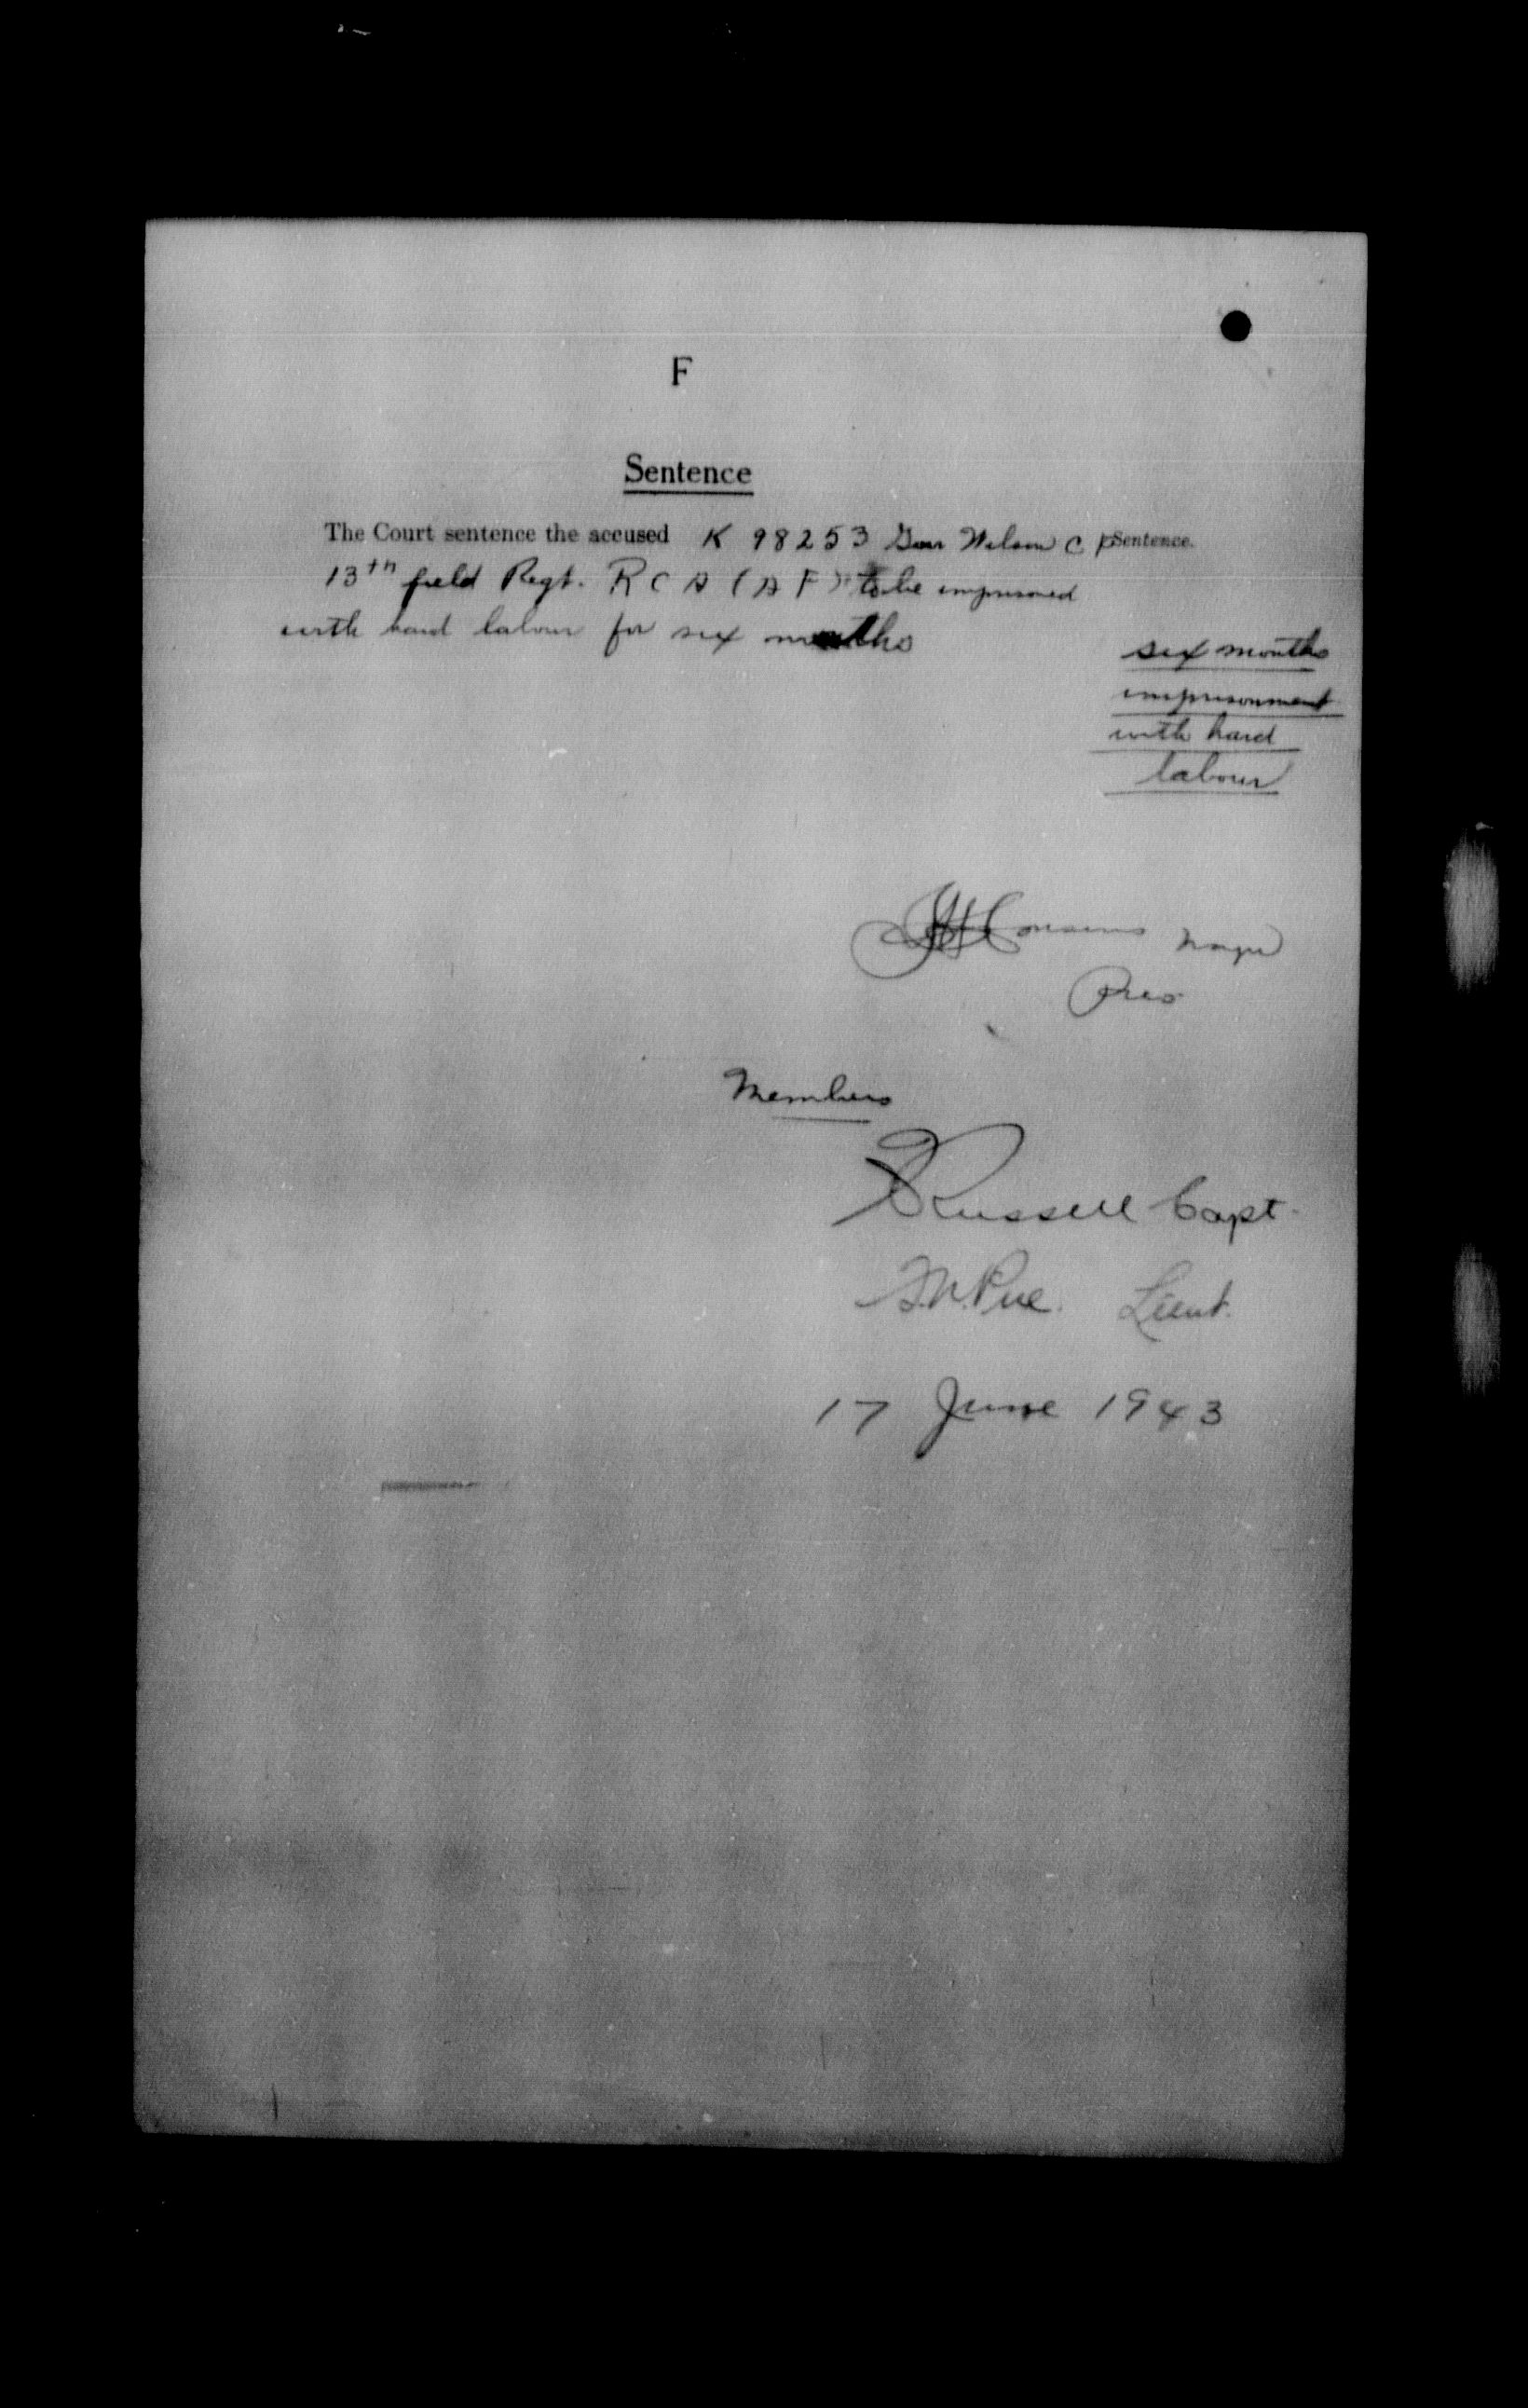 F
Sentence
The Court sentence the accused K 98253 Gnr Wilson C P Sentence.
13th field Regt. R C A (A F) to be imprisoned
with hard labour for six months
six months
imprisonment
with hard
labour
Major
Pres
Members
Russell Capt.
Pue. Lieut.
17 June 1943